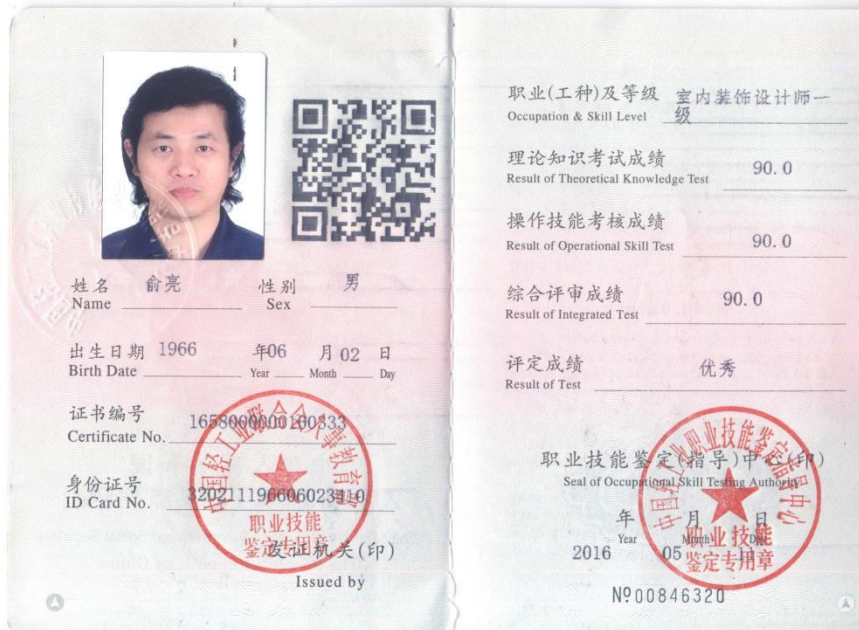 姓名 俞亮 性别 男
Name Sex
出生日期 1966 年06 月02 日
Birth Date Year Month Day
证书编号 1658000000100333
Certificate No.
身份证号 320211196606023410
ID Card No.
中国轻工业联合会人事教育部
职业技能
鉴定专用章
发证机关(印)
Issued by
职业(工种)及等级 室内装饰设计师一
级
Occupation & Skill Level
理论知识考试成绩 90.0
Result of Theoretical Knowledge Test
操作技能考核成绩 90.0
Result of Operational Skill Test
综合评审成绩 90.0
Result of Integrated Test
评定成绩 优秀
Result of Test
职业技能鉴定(指导)中心(印)
Seal of Occupational Skill Testing Authority
中国轻工业职业技能鉴定指导中心
职业技能
鉴定专用章
年 月 日
Year Month Day
2016 05 11
№00846320